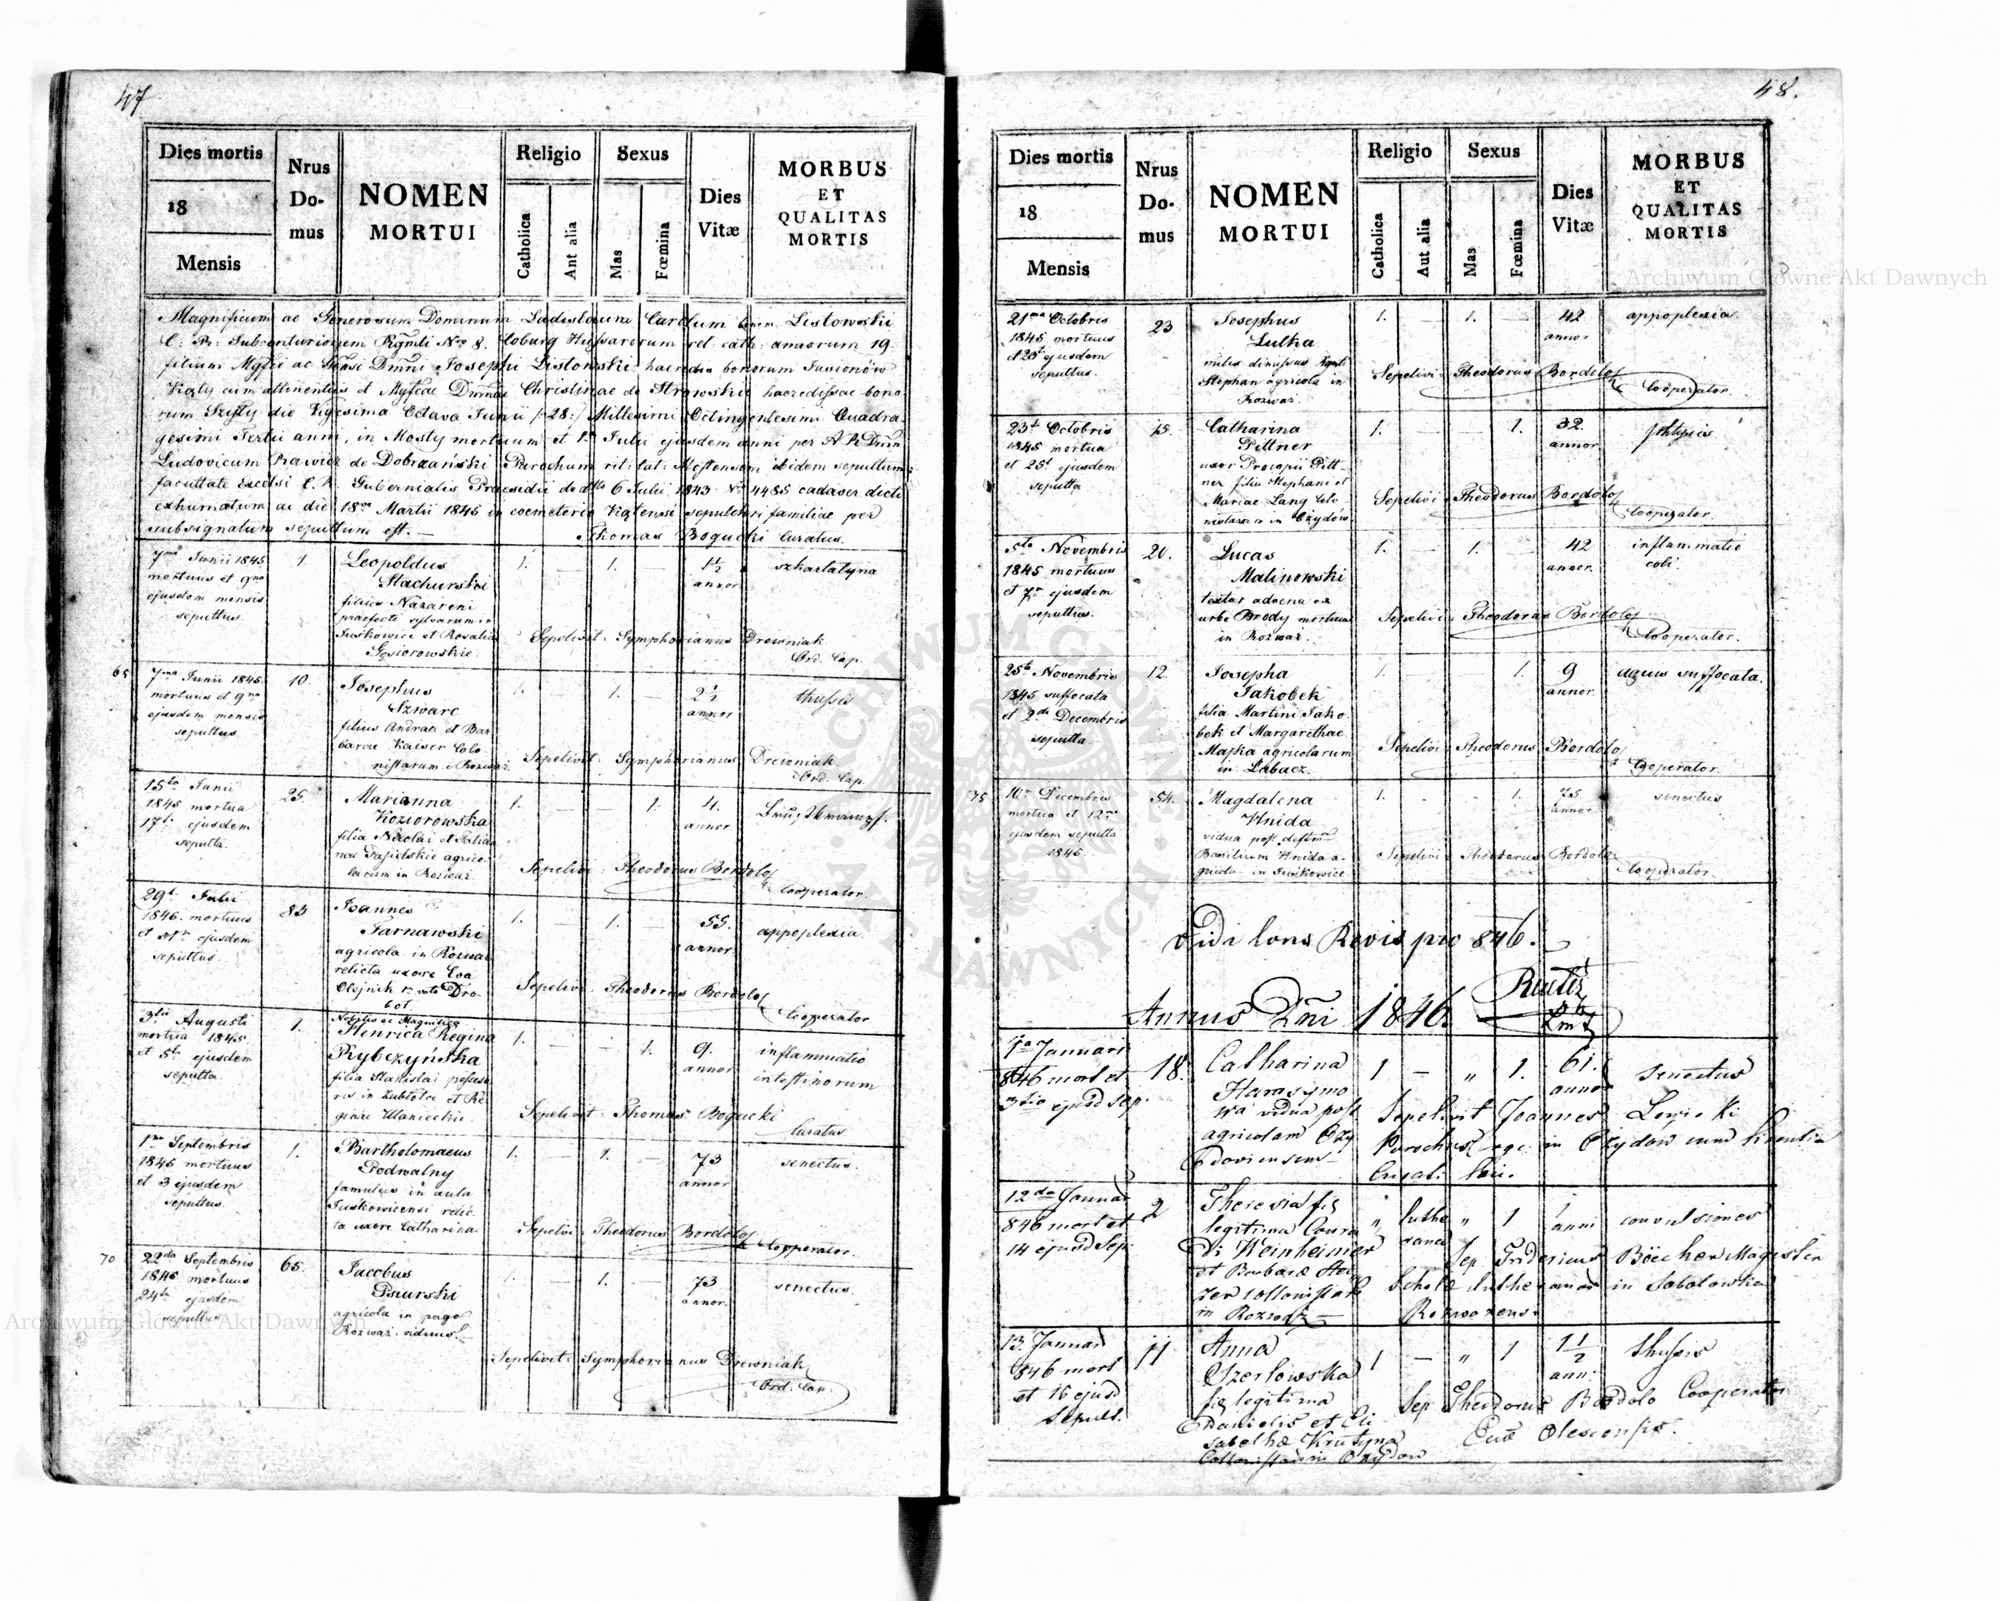 47
Dies mortis
18
Mensis
Nrus
Do-
mus
NOMEN
MORTUI
Religio
Catholica
Aut alia
Sexus
Mas
Fœmina
Dies
Vitæ
MORBUS
ET
QUALITAS
MORTIS
Magnificum ac Generosum Dominum Ladislaum Carolum Listowski
C. R. Subcenturionem Regmti Nro 8. Coburg Hussarorum rel: cath: annorum 19
filium Mgfci ac Gnsi Dmni Josephi Listowski haeredis bonorum Jasionów
cum attinentiis et Mgfcae Dmnae Christinae de Strowskie haeredissae bono
rum die Vigesima Octava Junii /:28:/ Millesimi Octingentesimi Quadra
gesimi Tertii anni, in Mosty mortuum et 1ª Julii ejusdem anni per A R Dmn
Ludovicum Rawicz de Dobrzański Parochum rit: lat: Mostensem ibidem sepultum
facultate Excelsi C. R. Gubernialis Praesidii ddto 6 Julii 1843 No 4485 cadaver dicti
exhumatum ac die 18va Martii 1845 in coemeterio sepulchri familiae per
subsignatum sepultum est. — Thomas Bogucki Curatus.
7ma Junii 1845
mortuus et 9na
ejusdem mensis
sepultus.
1.
Leopoldus
Stachurski
filius Nazareni
praefecti sylvarum in
Juskowice et Rosalia
Gąsiorowskie.
1. — 1. —
1½
annor.
szkarlatyna
Sepelivit: Symphorianus Drewniak
Ord. Cap.
65
7ma Junii 1845.
mortuus et 9na
ejusdem mensis
sepultus
10.
Josephus
Szwarc
filius Andreae et Bar
barae Kaiser Colo
nistarum Rozważ.
1. — 1. —
2½
annor
thussis
Sepelivit: Symphorianus Drewniak
Ord. Cap.
15ta Junii
1845 mortua
17. ejusdem
sepulta.
25.
Marianna
Koziorowska
filia Nicolai et
agrico
larum in Rozważ
1. — — 1.
4.
annor
Sepelivi: Theodorus Bordolo
Cooperator.
29. Julii
1845. mortuus
et 31. ejusdem
sepultus.
83
Joannes
Tarnawski
agricola in Rozważ
relicta uxore Eva
Olejnik nata Dro-
bot
1. — 1. —
55.
annor.
appoplexia.
Sepelivi Theodorus Bordolo
Cooperator
3tii Augusti
mortua 1845.
et 5ta ejusdem
sepulta.
1.
Nobilis ac Magnifica
Henrica Regina
Rybczyńska
filia Stanislai posseso
ris in et Re
ginae Ulanieckie.
1. — — 1.
9.
annor
inflammatio
intestinorum
Sepelivit: Thomas Bogucki
Curatus
1ma Septembris
1845 mortuus
et 3 ejusdem
sepultus.
1.
Bartholomaeus
Podwalny
famulus in aula
Juskowicensi relic
ta uxore Catharina
1. — 1. —
73
annor
senectus.
Sepelivi Theodorus Bordolo
Cooperator.
70
22da Septembris
1845 mortuus
24ta ejusdem
sepultus
65.
Jacobus
Psiurski
agricola in pago
Rozważ viduus.
1. — 1. —
73
annor.
senectus.
Sepelivit: Symphorianus Drewniak
Ord. Cap.
48.
Dies mortis
18
Mensis
Nrus
Do-
mus
NOMEN
MORTUI
Religio
Catholica
Aut alia
Sexus
Mas
Fœmina
Dies
Vitæ
MORBUS
ET
QUALITAS
MORTIS
21ma Octobris
1845 mortuus
et 23 ejusdem
sepultus.
23
Josephus
Lutka
miles dimissus
Stephan agricola in
Rozważ.
1. — 1. —
42
annor
appoplexia.
Sepelivi Theodorus Bordolo
Cooperator.
23 Octobris
1845 mortua
et 25 ejusdem
sepulta
15.
Catharina
Pittner
uxor Procopii Pitt-
ner filia Stephani et
Mariae Lang Colo
nistarum in Ożydów.
1. — — 1.
32.
annor
phtysis
Sepelivi Theodorus Bordolo
Cooperator.
5ta Novembris
1845 mortuus
et 7 ejusdem
sepultus.
20.
Lucas
Malinowski
textor advena ex
urbe Brody mortuus
in Rozważ.
1. — 1. —
42
annor.
inflammatio
coli.
Sepelivi Theodorus Bordolo
Cooperator.
25ta Novembris
1845 suffocata
et 2da Decembris
sepulta
12.
Josepha
Jakobek
filia Martini Jako
bek et Margarethae
Majka agricolarum
in Łabacz.
1. — — 1.
9
annor.
aquis suffocata.
Sepelivi Theodorus Bordolo
Cooperator.
75
10 Decembris
mortua et 12
ejusdem sepulta
1845.
54.
Magdalena
Hnida
vidua post defunct
Basilium Hnida a-
gricola in Juskowice
1. — — 1.
75
annor
senectus
Sepelivi Theodorus Bordolo
Cooperator.
Vidi Revis pro 846.
Annus Dni 1846.
1a Januari
846 mort et
3tio ejusd sep.
18.
Catharina
vidua post
agricolam Oży
doviensem
1 — „ 1.
61.
annor
senectus
Sepelivit Joannes
Parochus in Ożydów cum licentia
Curati loci.
12da Januar
846 mort et
14 ejusd sep.
2
Theresia fis
legitima Conra
di Weinheimer
et Barbaræ
zer collonistarū
in Rozważ
„ luthe
rana „ 1
1
anni
convulsiones
Sep. Fridericus Böecher Magister
Scholæ lutheranae in Sabatowka
Rozwazensi
13. Januar
846 mort
et 16 ejusd
sepult.
11
Anna
Czerlowska
fis legitima
Danielis et Eli
sabethæ Krutyna
Collonistarū in Ożydów
1 — „ 1
1½
ann:
thussis
Sep Theodorus Bordolo Cooperator
Olescensis.
Archiwum Główne Akt Dawnych
Archiwum Główne Akt Dawnych
ARCHIWUM GŁÓWNE AKT DAWNYCH